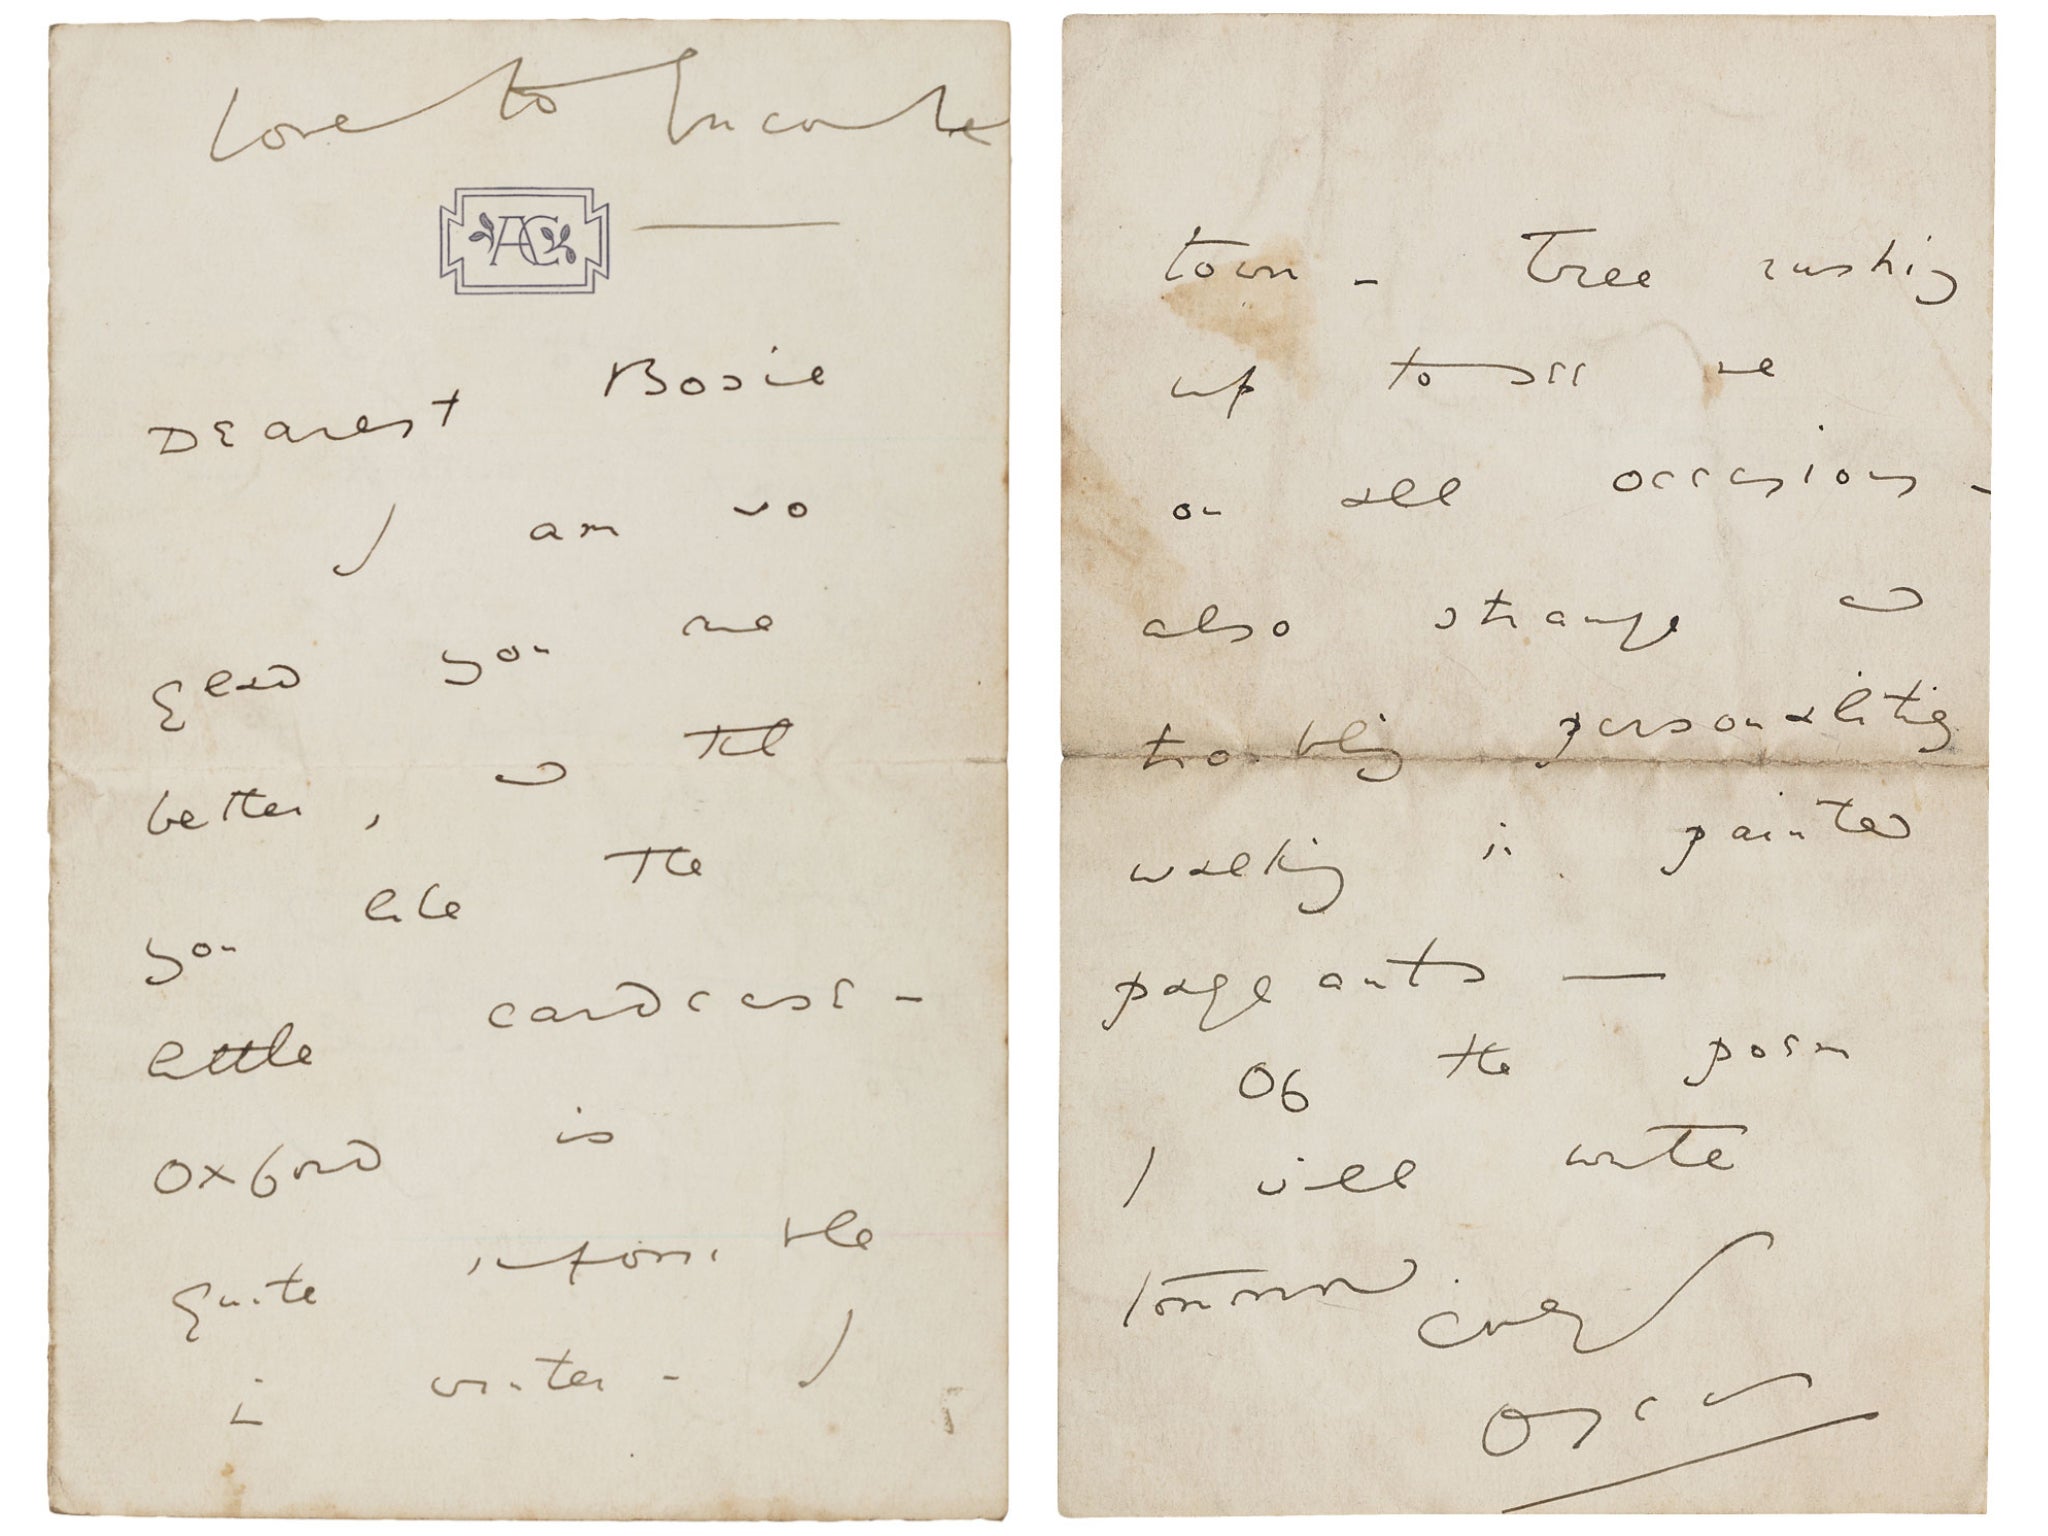 Love to Encombe
AC
Dearest Bosie
I am so
glad you are
better, & that
you like the
little cardcase -
Oxford is
quite impossible
in winter - I
town - Tree rushing
up to see me
on all occasions -
also strange &
troubling personalities
walking in painted
pageants —
Of the poem
I will write
tomorrow Ever
Oscar